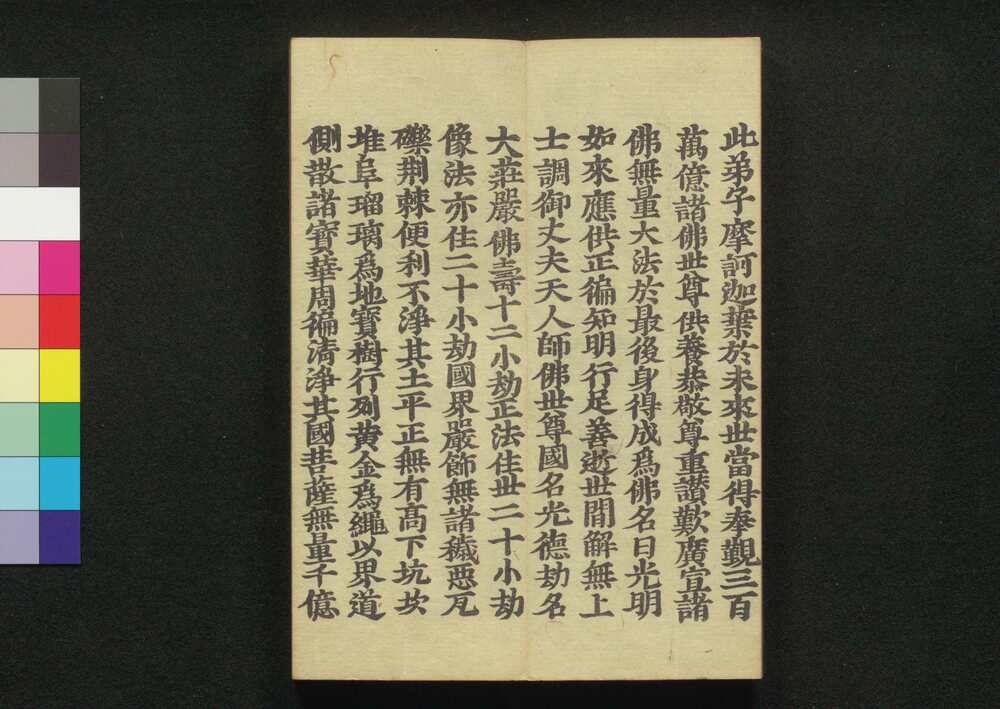 此弟子摩訶迦葉於未來世當得奉覲三百
萬億諸佛世尊供養恭敬尊重讃歎廣宣諸
佛無量大法於最後身得成爲佛名曰光明
如來應供正徧知明行足善逝世間解無上
士調御丈夫天人師佛世尊國名光德劫名
大莊嚴佛壽十二小劫正法住世二十小劫
像法亦住二十小劫國界嚴飾無諸穢惡瓦
礫荆棘便利不淨其土平正無有高下坑坎
堆阜瑠璃爲地寶樹行列黄金爲繩以界道
側散諸寶華周徧清淨其國菩薩無量千億